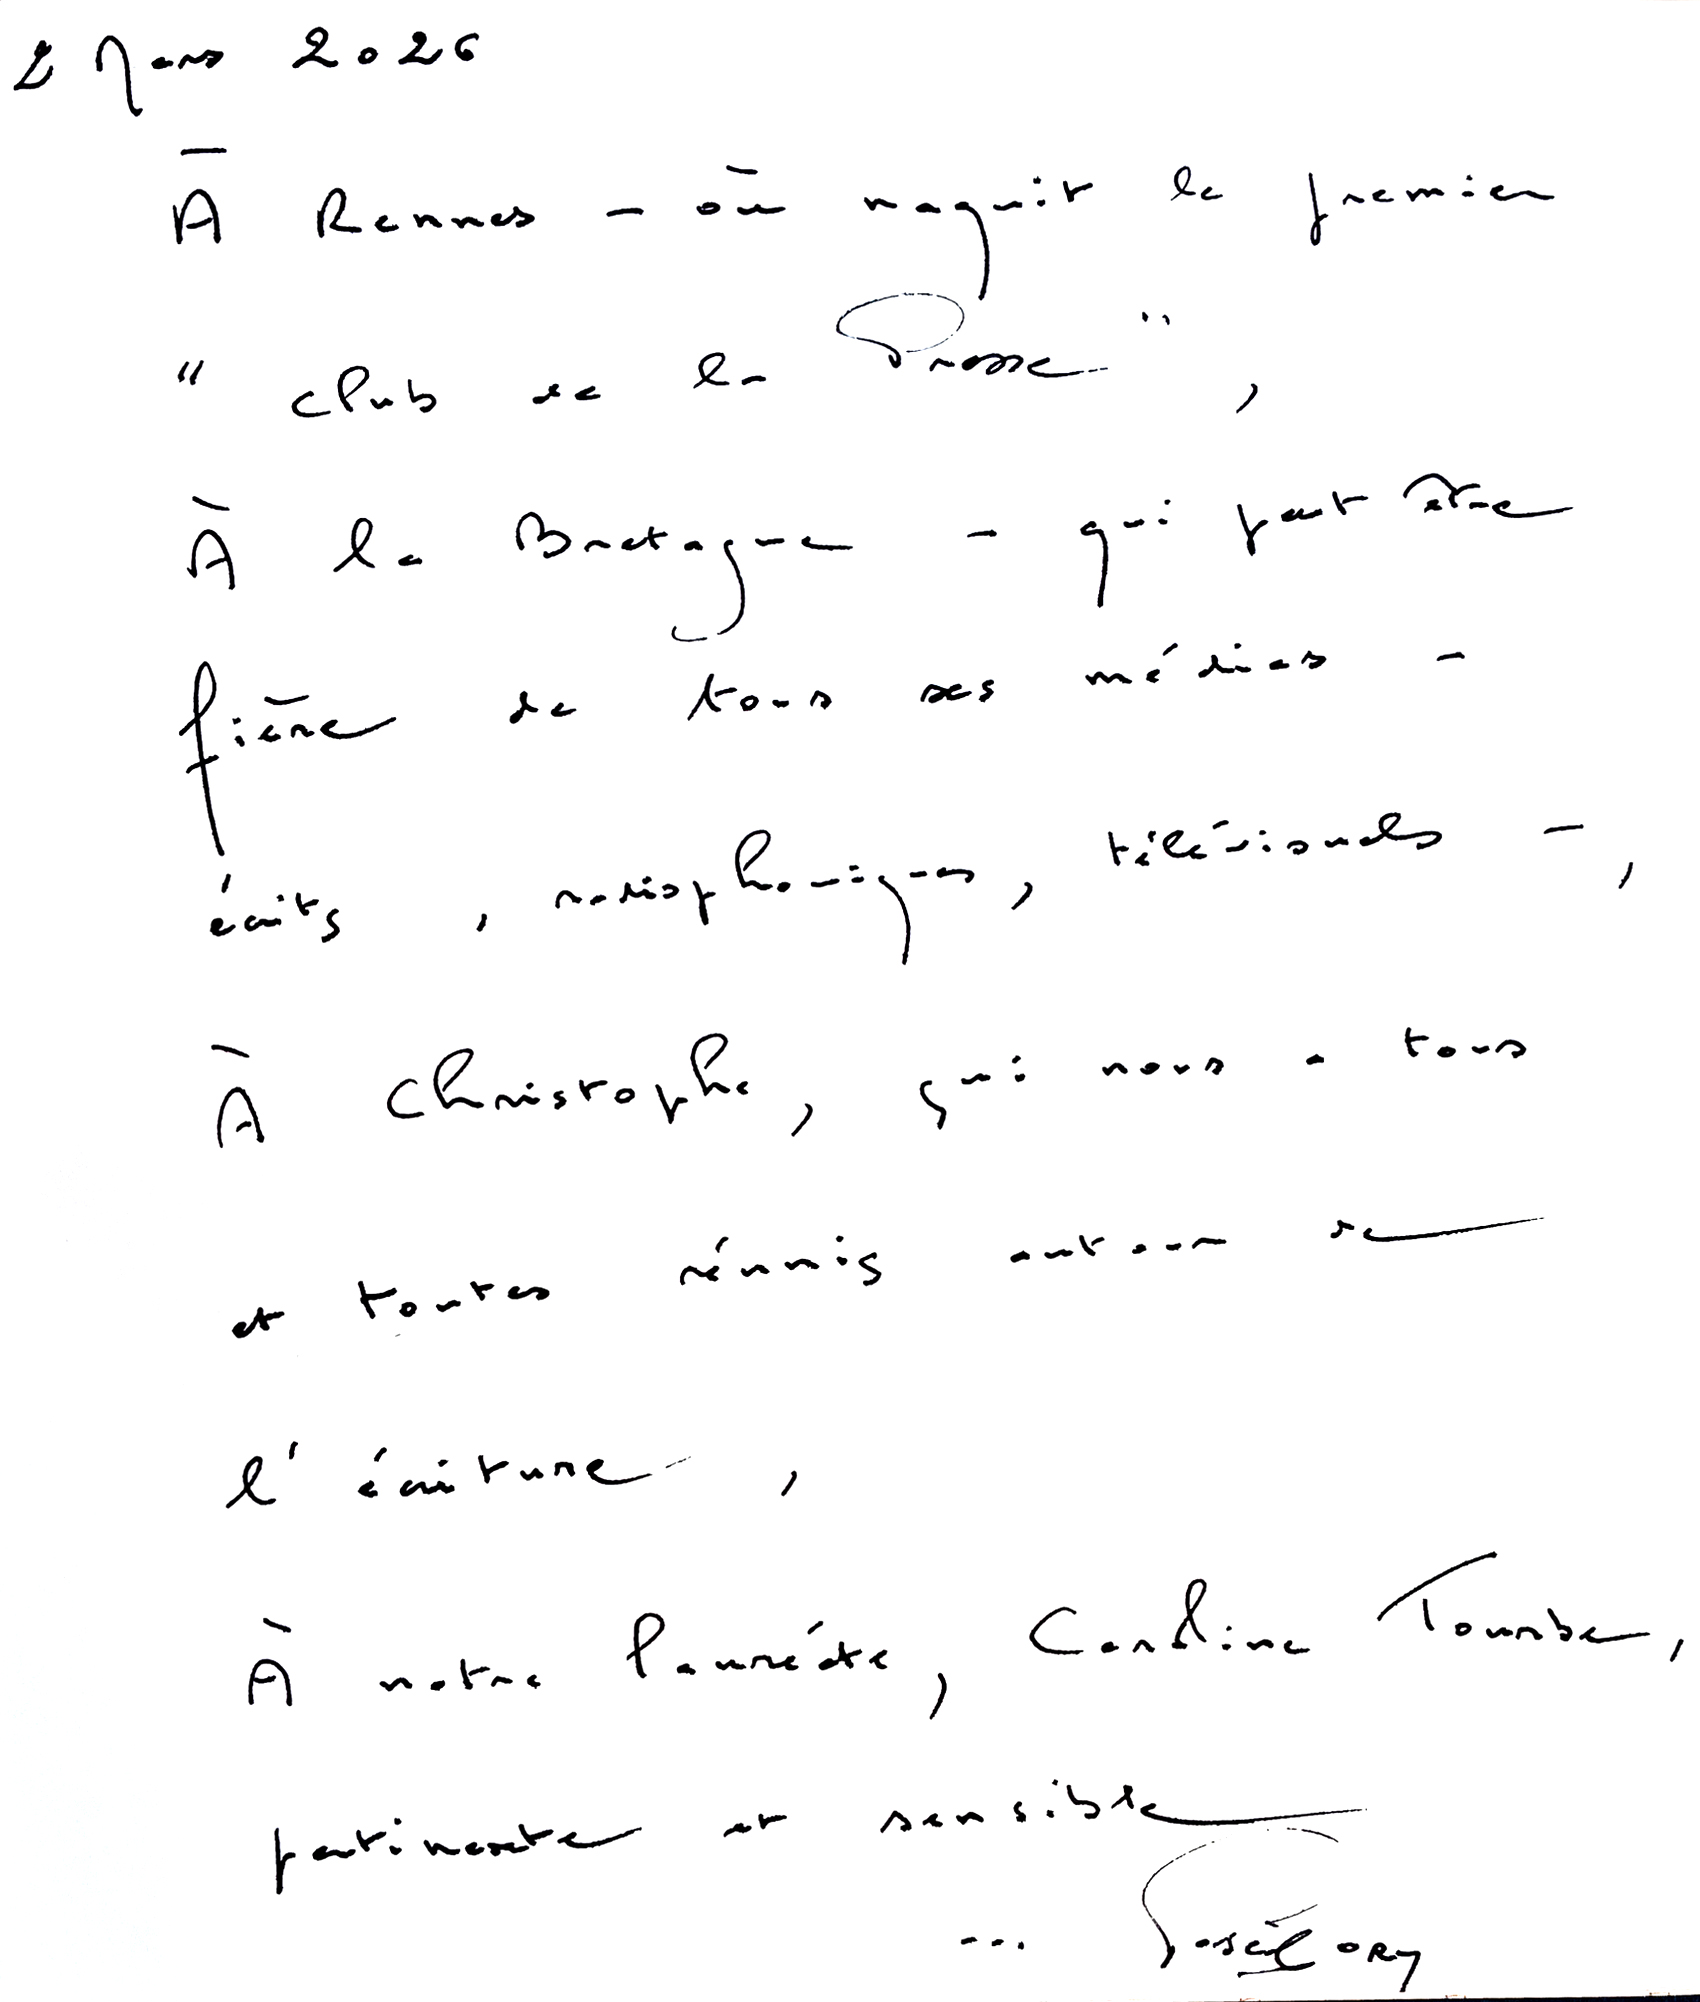 2 Mars 2026
À Rennes - où naquit le premier
" Club de la Presse ",
À la Bretagne - qui peut être
fière de tous ses médias -
écrits, radiophoniques, télévisuels -,
À Christophe, qui nous a tous
et toutes réunis autour de
l'écriture,
À notre lauréate, Caroline Tourbe,
pertinente et sensible
... Pascal ORY